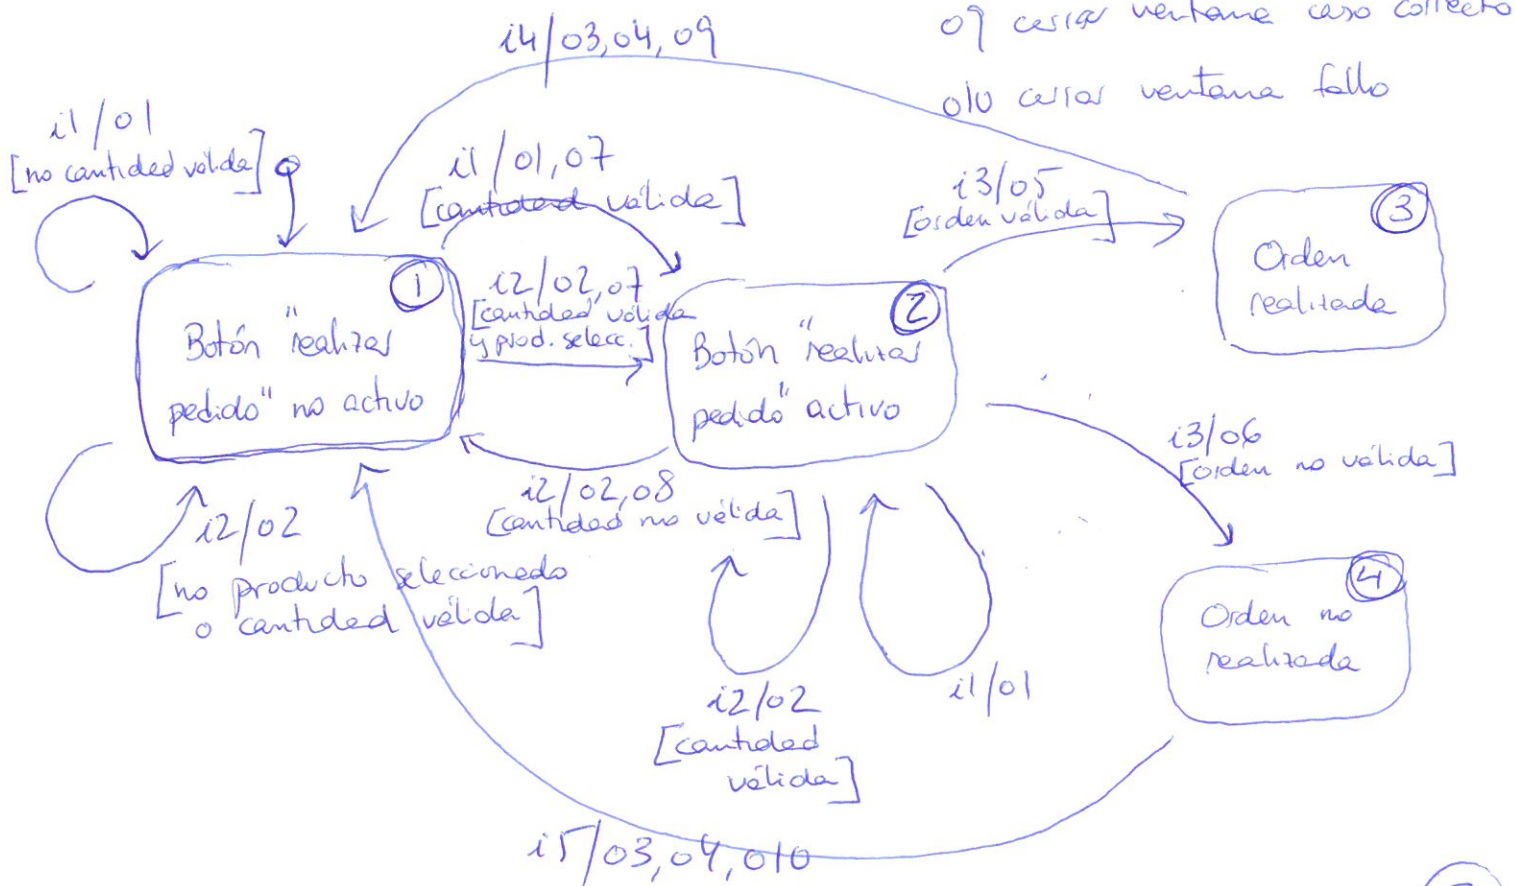 o9 cerrar ventana caso correcto
o10 cerrar ventana fallo
i4/o3,o4,o9
i1/o1
[no cantidad válida]
i1/o1,o7
[cantidad válida]
i3/o5
[orden válida]
3
Orden
realizada
1
Botón "realizar
pedido" no activo
i2/o2,o7
[cantidad válida
y prod. selecc.]
2
Botón "realizar
pedido" activo
i3/o6
[orden no válida]
i2/o2,o8
[cantidad no válida]
i2/o2
[no producto seleccionado
o cantidad válida]
i2/o2
[cantidad
válida]
i1/o1
4
Orden no
realizada
i5/o3,o4,o10